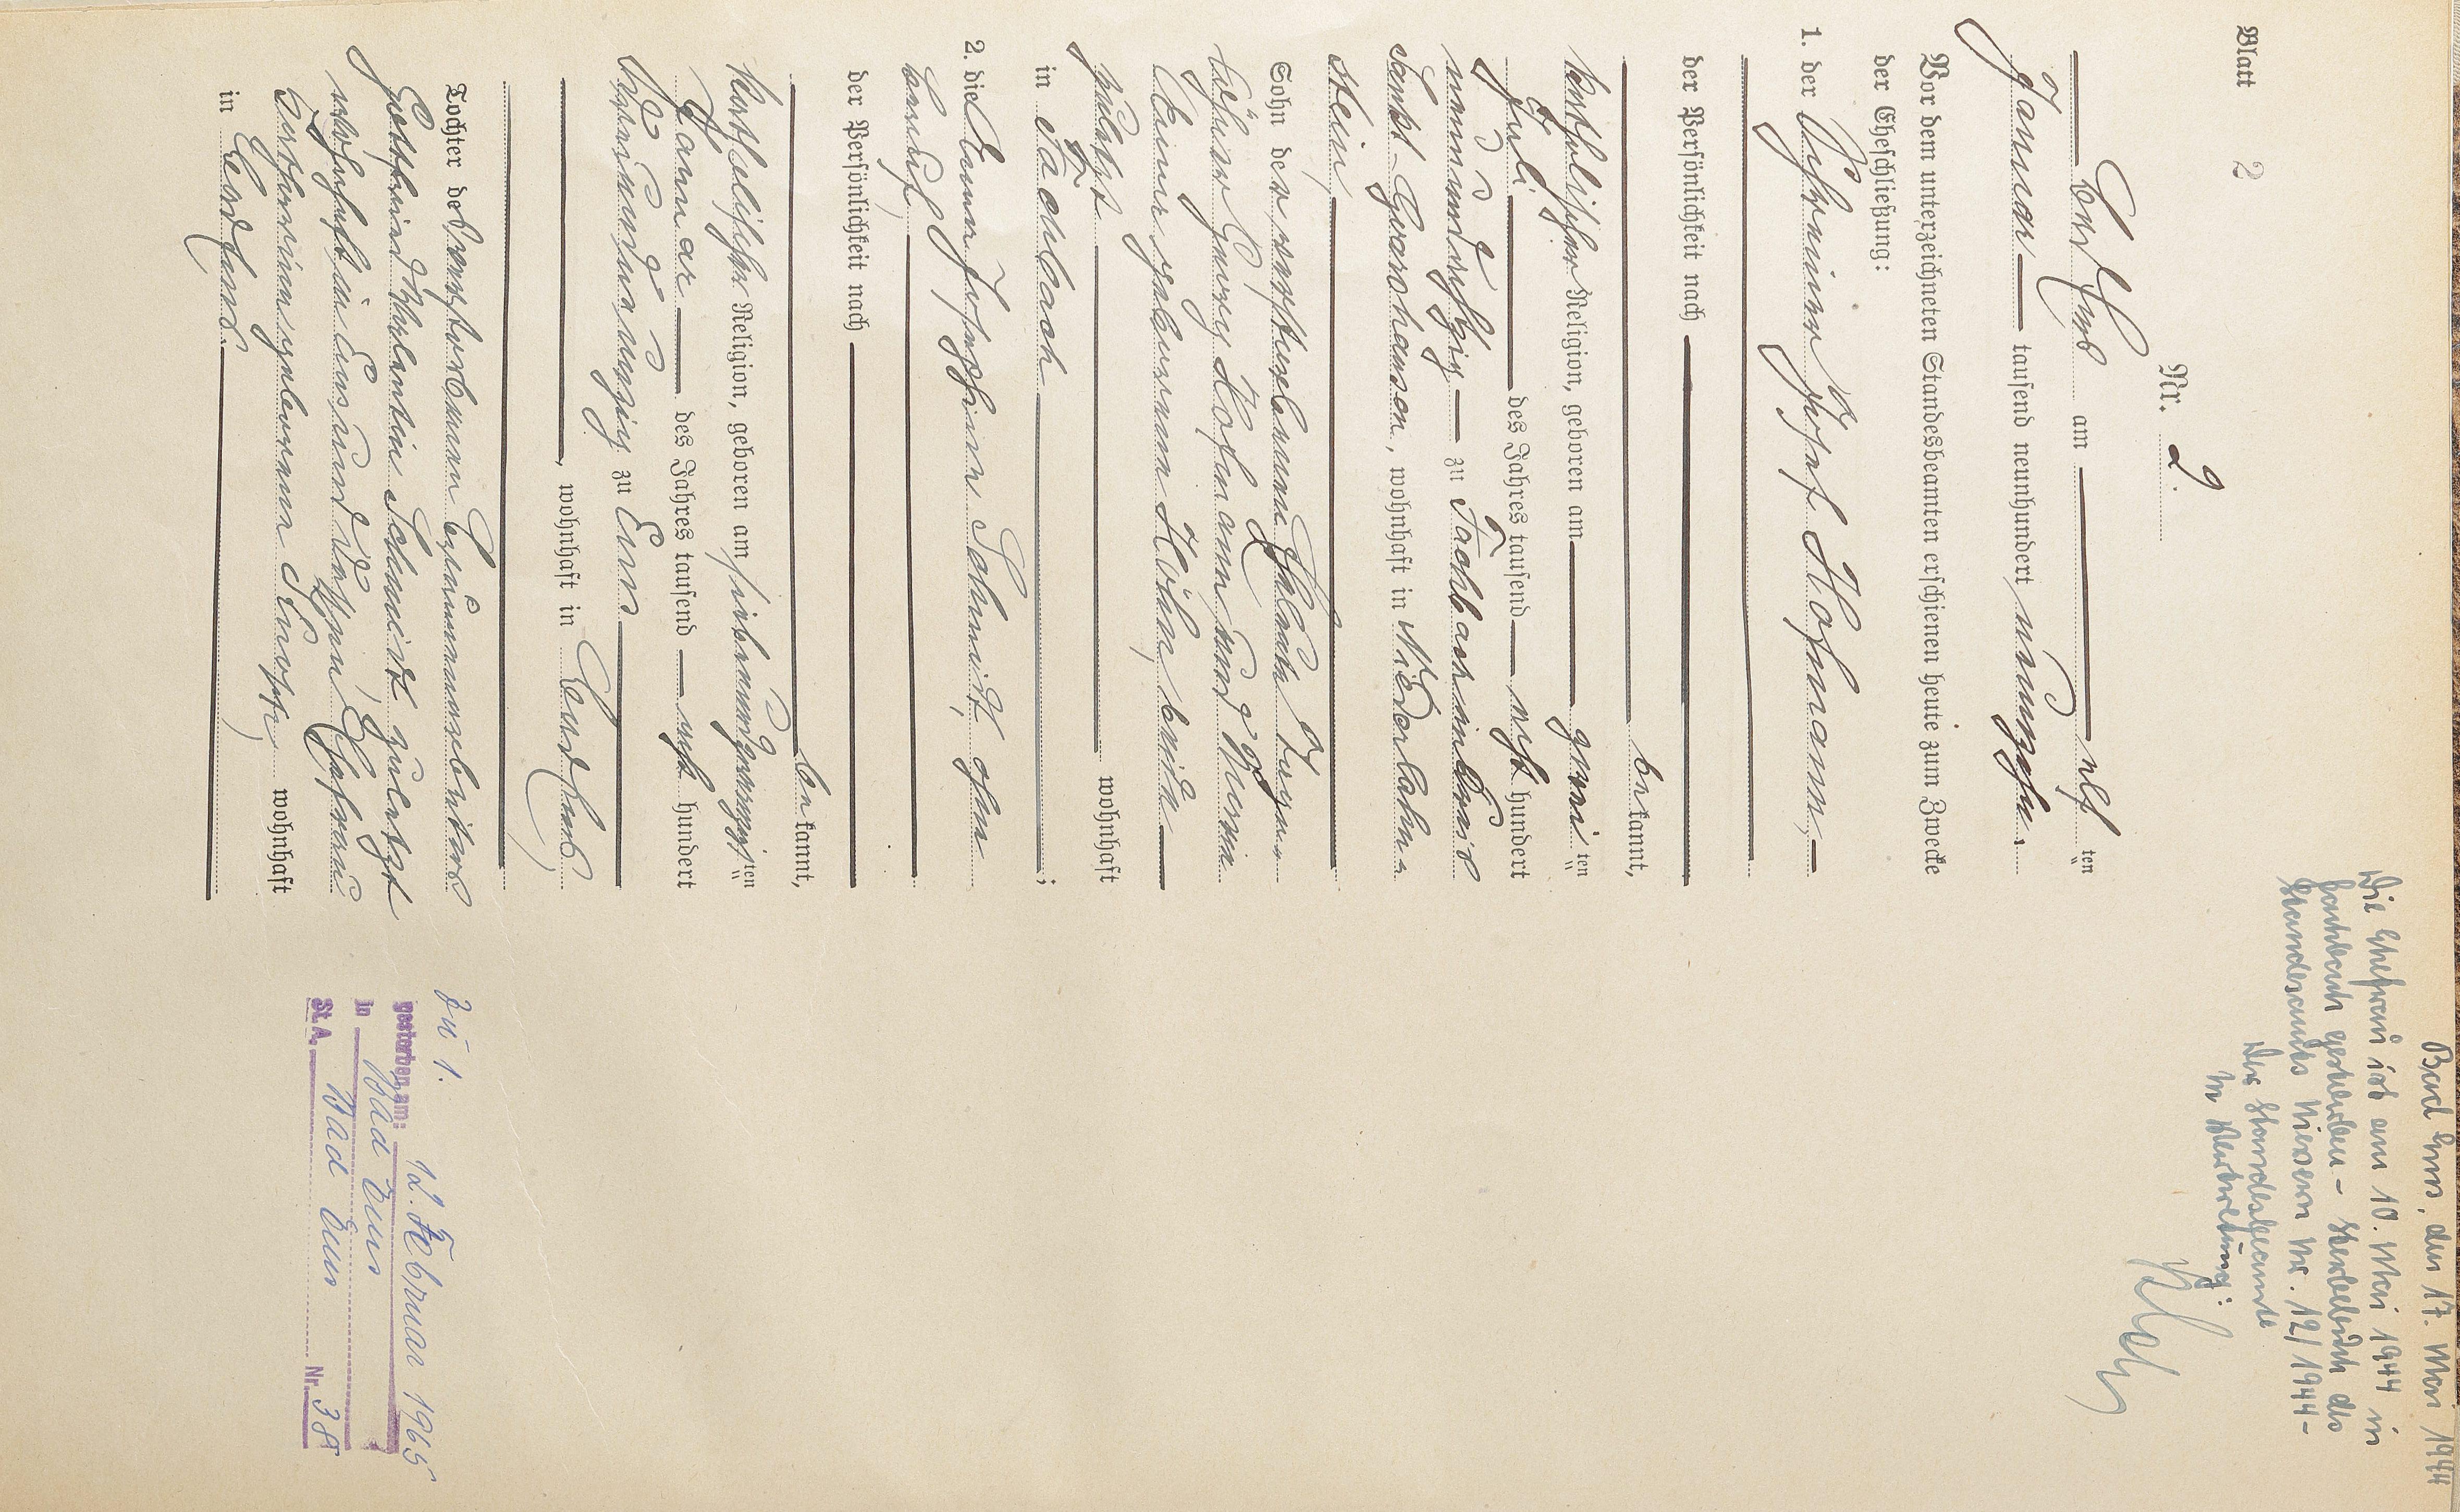 Blatt 2
Nr. 2.
am elf ten
Januar tausend neunhundert neunzehn.
Vor dem unterzeichneten Standesbeamten erschienen heute zum Zwecke
der Eheschließung:
1. der Josef Hofmann,
der Persönlichkeit nach
bekannt,
katholischer Religion, geboren am zweiten
Juli des Jahres tausend acht hundert
neunundachtzig zu Fachbach im Kreise
Sankt-Goarshausen, wohnhaft in Niederlahn-
stein,
Sohn der verstorbenen Eheleute
Georg Hofmann und
geborenen Höhn, beide
zuletzt wohnhaft
in Fachbach;
2. die Emma Josefine Schmidt, ohne
Beruf,
der Persönlichkeit nach
bekannt,
katholischer Religion, geboren am siebenundzwanzigsten
Januar des Jahres tausend acht hundert
zu Ems
, wohnhaft in
Tochter des verstorbenen
Schmidt, zuletzt
wohnhaft in Ems und dessen Ehefrau
Katharina geborenen wohnhaft
in
Bad Ems, den 17. Mai 1944
Die Ehefrau ist am 10. Mai 1944 in
Fachbach gestorben - Sterbebuch des
Standesamts Nievern Nr. 12/1944 -
Der Standesbeamte
In Vertretung:
zu 1.
gestorben am: 12. Februar 1965
in Bad Ems
St. A. Bad Ems Nr. 38